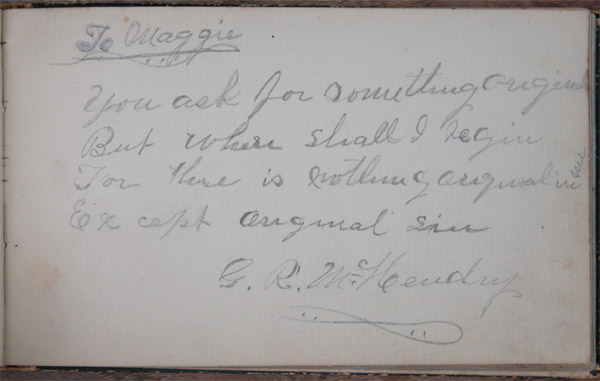 To Maggie
You ask for something original
But where shall I begin
For there is nothing original in me
Except original sin
G. R. McHendry